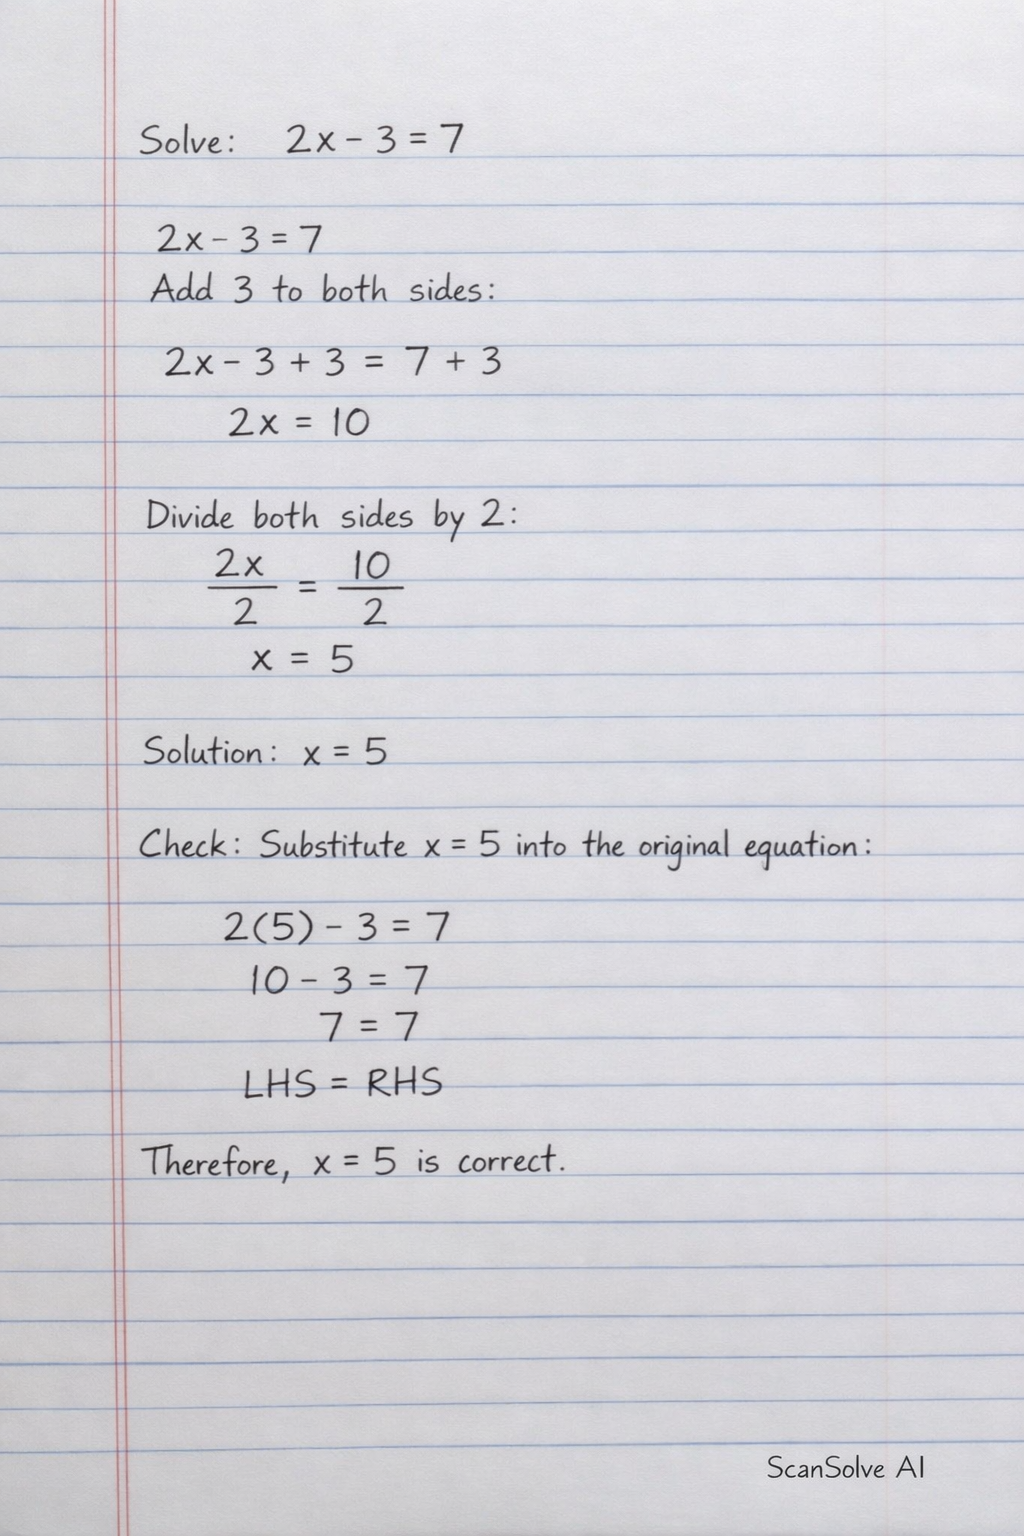 Solve: 2x - 3 = 7
2x - 3 = 7
Add 3 to both sides:
2x - 3 + 3 = 7 + 3
2x = 10
Divide both sides by 2:
2x/2 = 10/2
x = 5
Solution: x = 5
Check: Substitute x = 5 into the original equation:
2(5) - 3 = 7
10 - 3 = 7
7 = 7
LHS = RHS
Therefore, x = 5 is correct.
ScanSolve AI